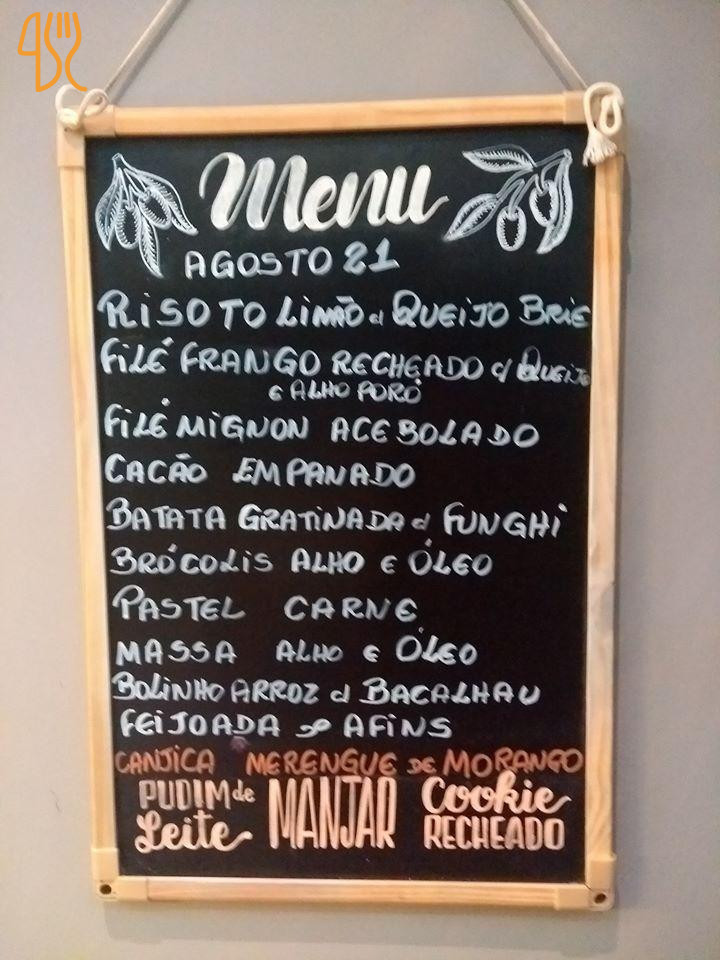 Menu
AGOSTO 21
RISOTO LIMÃO c/ QUEIJO BRIE
FILÉ FRANGO RECHEADO c/ QUEIJO
E ALHO PORÓ
FILÉ MIGNON ACEBOLADO
CACÃO EMPANADO
BATATA GRATINADA c/ FUNGHI
BRÓCOLIS ALHO E ÓLEO
PASTEL CARNE
MASSA ALHO E ÓLEO
BOLINHO ARROZ c/ BACALHAU
FEIJOADA & AFINS
CANJICA MERENGUE DE MORANGO
PUDIM de Leite MANJAR Cookie RECHEADO